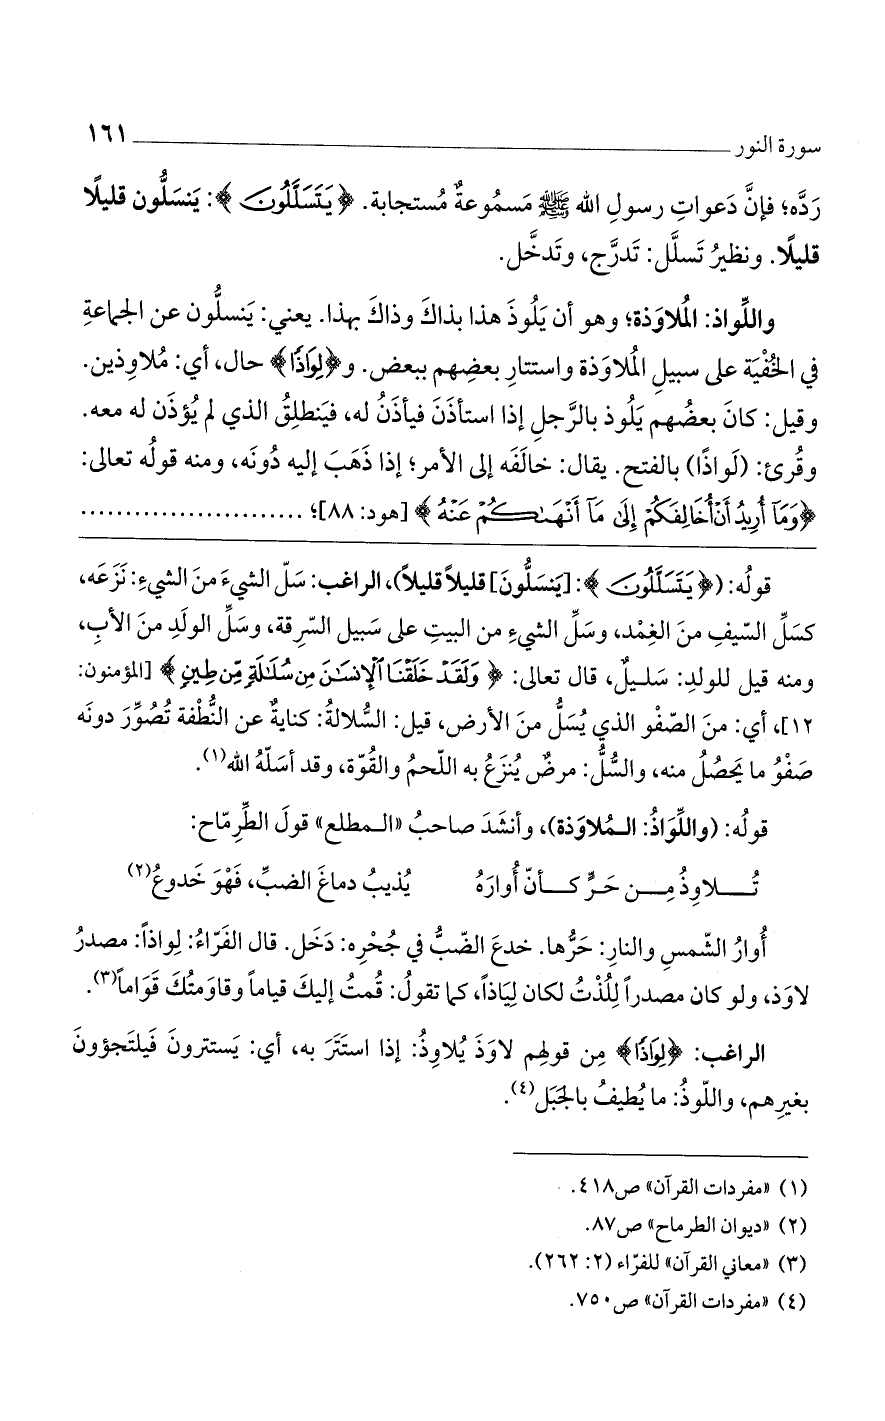 سورة النور ١٦١
رَدَّه؛ فإنَّ دَعواتِ رسولِ الله ﷺ مَسمُوعةٌ مُستجابة. ﴿يَتَسَلَّلُونَ﴾: يَنسَلُّون قليلًا
قليلًا. ونظيرُ تَسلَّل: تَدرَّج، وتَدخَّل.
واللِّواذ: المُلاوَذة؛ وهو أن يَلُوذَ هذا بذاكَ وذاكَ بهذا. يعني: يَنسلُّون عن الجماعةِ
في الخُفْيَة على سبيلِ المُلاوَذة واستتارِ بعضِهم ببعض. و﴿لِوَاذًا﴾ حال، أي: مُلاوِذين.
وقيل: كانَ بعضُهم يَلُوذ بالرَّجلِ إذا استأذَنَ فيأذَنُ له، فيَنطلِقُ الذي لم يُؤذَن له معه.
وقُرئ: (لَواذًا) بالفتح. يقال: خالَفَه إلى الأمر؛ إذا ذَهَبَ إليه دُونَه، ومنه قولُه تعالى:
﴿وَمَآ أُرِيدُ أَنْ أُخَالِفَكُمْ إِلَىٰ مَآ أَنْهَىٰكُمْ عَنْهُ﴾ [هود: ٨٨]؛ ........................
قولُه: (﴿يَتَسَلَّلُونَ﴾: [يَنسَلُّونَ] قليلاً قليلاً)، الراغب: سَلّ الشيءَ منَ الشيءِ: نَزَعَه،
كسَلِّ السّيفِ منَ الغِمْد، وسَلِّ الشيءِ من البيتِ على سَبيل السَّرِقة، وسَلِّ الولَدِ منَ الأبِ،
ومنه قيل للولدِ: سَليلٌ، قال تعالى: ﴿وَلَقَدْ خَلَقْنَا ٱلْإِنسَـٰنَ مِن سُلَـٰلَةٍ مِّن طِينٍ﴾ [المؤمنون:
١٢]، أي: منَ الصّفْو الذي يُسَلُّ منَ الأرض، قيل: السُّلالةُ: كنايةٌ عن النُّطْفة تُصُوِّرَ دونَه
صَفْوُ ما يَحصُلُ منه، والسُّلُّ: مرضٌ يُنزَعُ به اللّحمُ والقُوّة، وقد أسَلّهُ الله(١).
قولُه: (واللِّوَاذُ: المُلاوَذة)، وأنشَدَ صاحبُ «المطلع» قولَ الطِّرِمّاح:
تُلاوِذُ مِن حَرٍّ كأنّ أُوارَهُ يُذيبُ دماغَ الضبِّ، فَهْوَ خَدوعُ(٢)
أُوارُ الشّمسِ والنارِ: حَرُّها. خدعَ الضّبُّ في جُحْرِه: دَخَل. قال الفَرّاءُ: لِواذاً: مصدرُ
لاوَذ، ولو كان مصدراً لِلُذْتُ لكان لِيَاذاً، كما تقولُ: قُمتُ إليكَ قياماً وقاوَمتُكَ قَوَاماً(٣).
الراغب: ﴿لِوَاذًا﴾ مِن قولِهم لاوَذَ يُلاوِذُ: إذا استَتَرَ به، أي: يَستترونَ فَيلتَجؤونَ
بغيرِهم، واللّوذُ: ما يُطيفُ بالجَبَل(٤).
(١) «مفردات القرآن» ص٤١٨.
(٢) «ديوان الطرماح» ص٨٧.
(٣) «معاني القرآن» للفرّاء (٢: ٢٦٢).
(٤) «مفردات القرآن» ص٧٥٠.